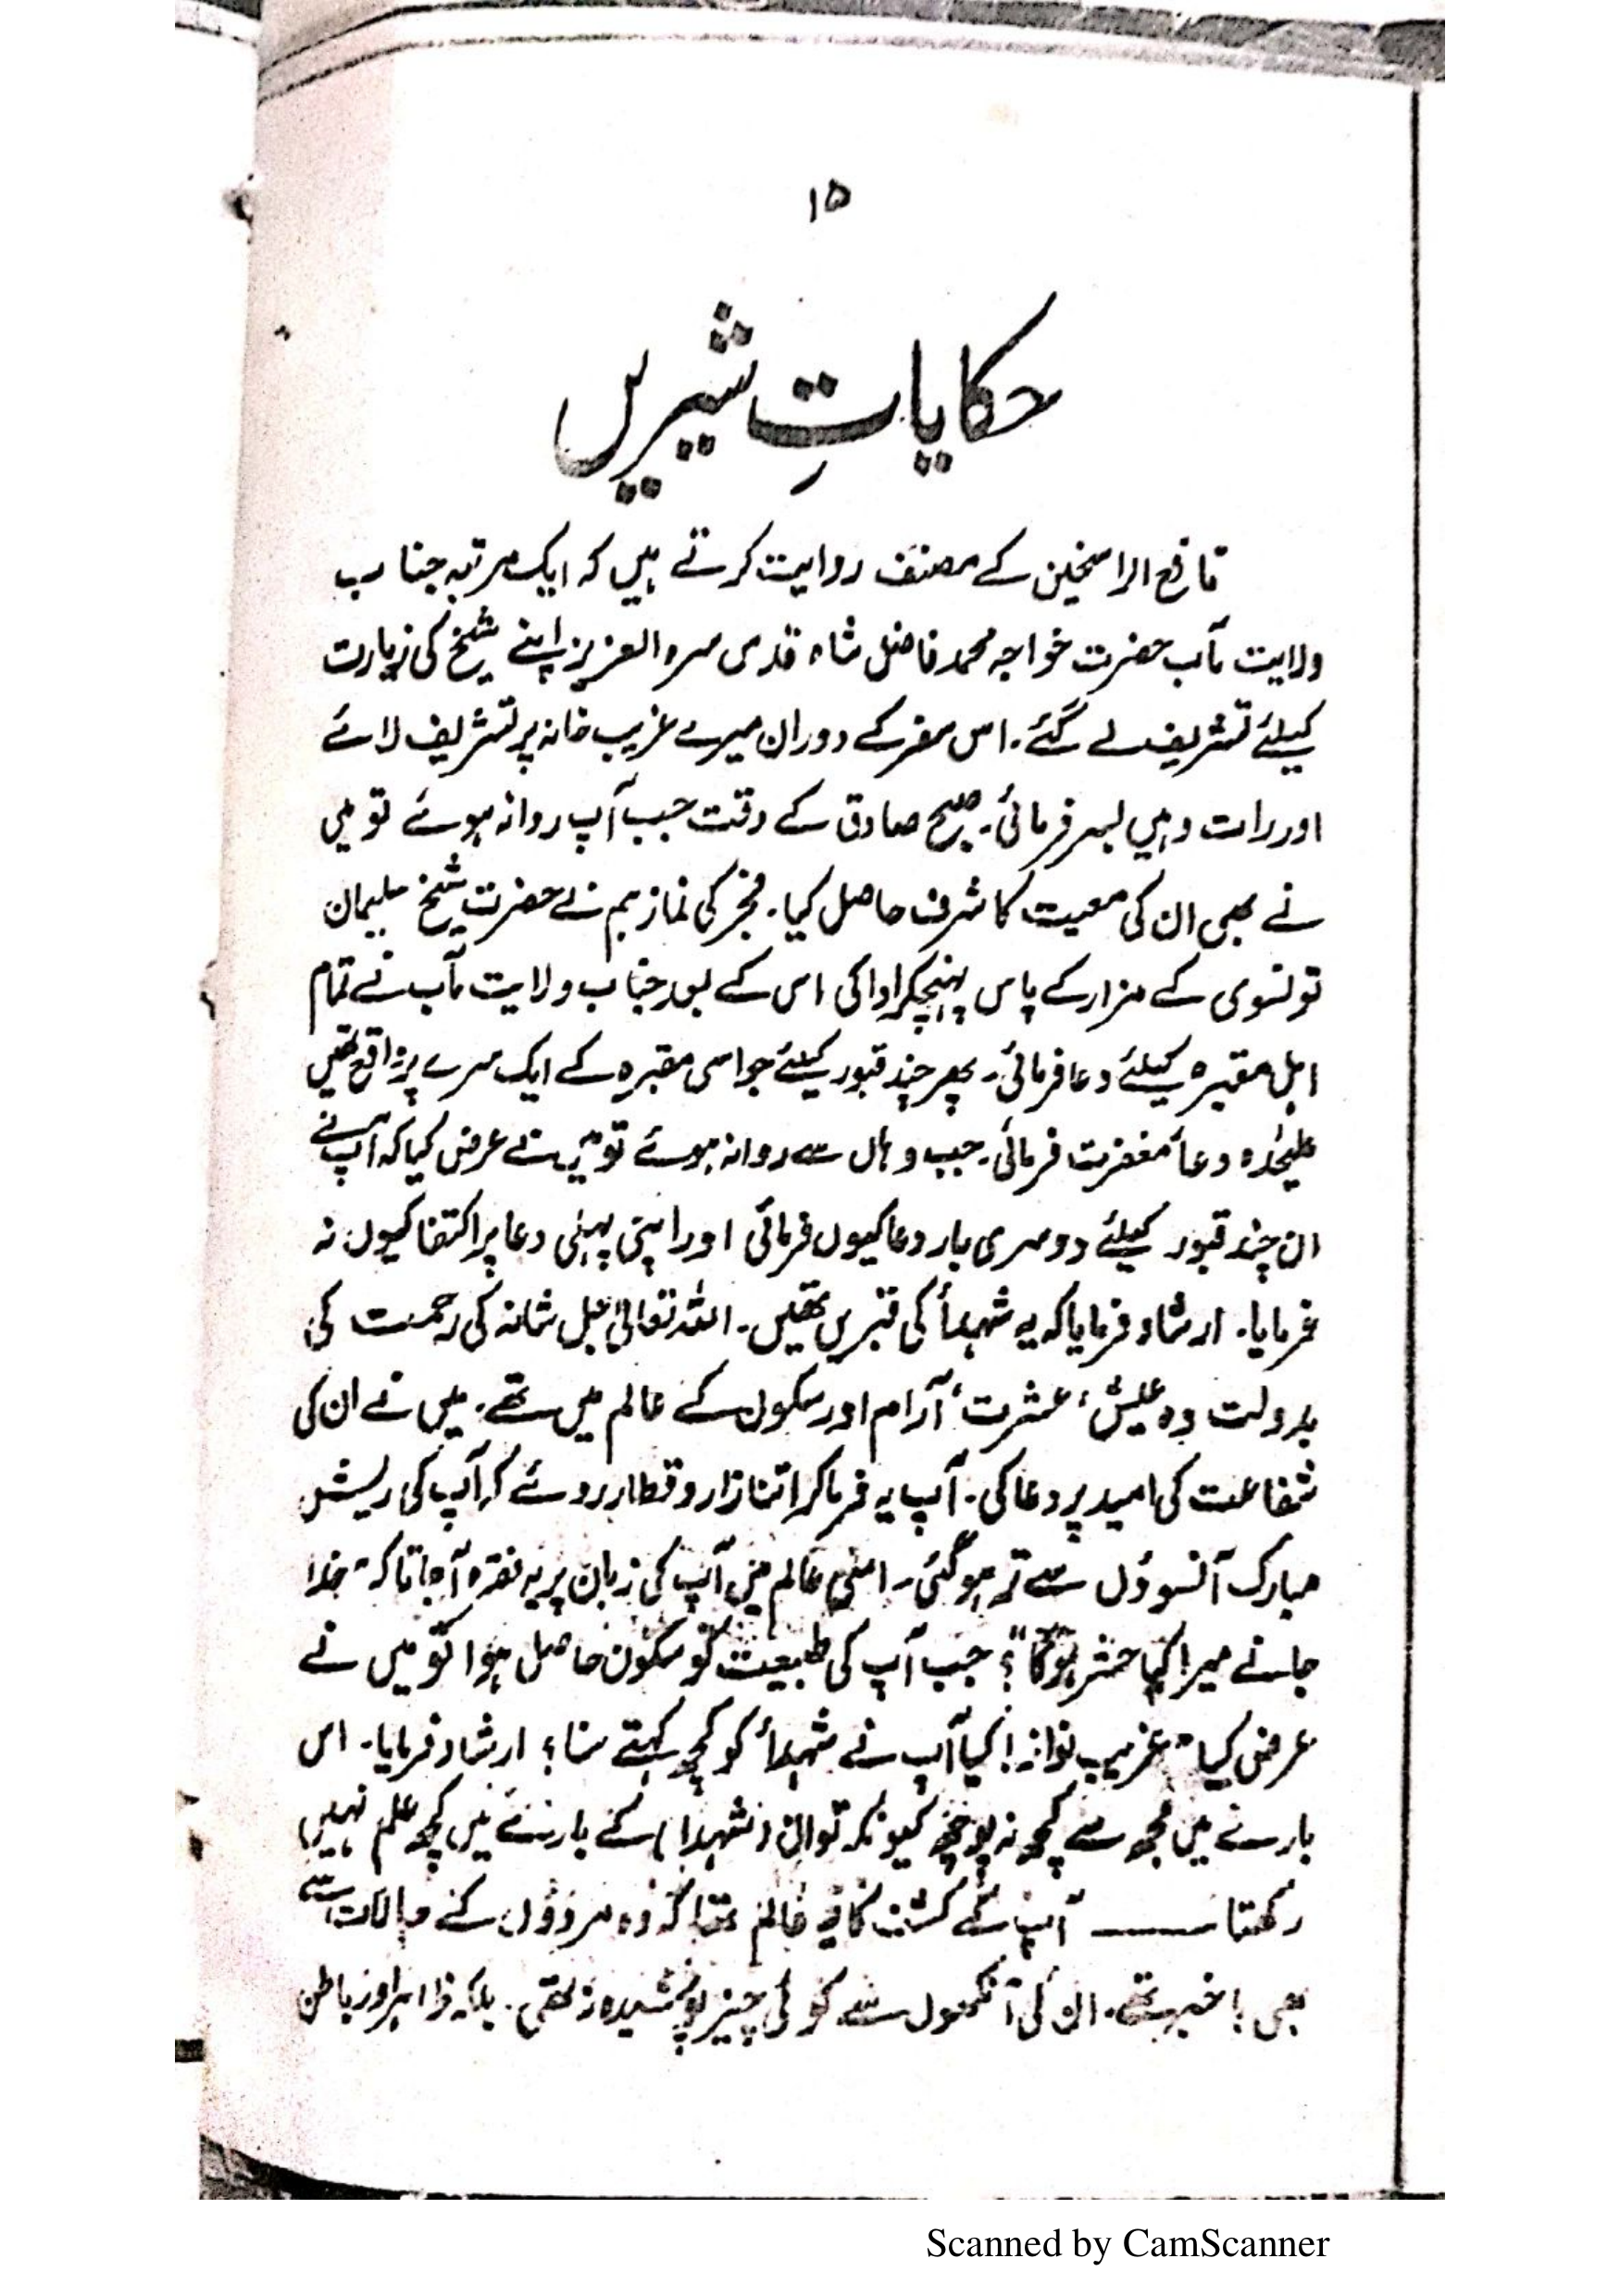 ۱۵
حکایاتِ شیریں
نافع الراسخین کے مصنف روایت کرتے ہیں کہ ایک مرتبہ جناب
ولایت مآب حضرت خواجہ محمد فاضل شاہ قدس سرہ العزیز اپنے شیخ کی زیارت
کیلئے تشریف لے گئے۔ اس سفر کے دوران میرے غریب خانہ پر تشریف لائے
اور رات وہیں بسر فرمائی۔ صبح صادق کے وقت جب آپ روانہ ہوئے تو میں
نے بھی ان کی معیت کا شرف حاصل کیا۔ فجر کی نماز ہم نے حضرت شیخ سلیمان
تونسوی کے مزار کے پاس پہنچکر ادا کی اس کے بعد جناب ولایت مآب نے تمام
اہل مقبرہ کیلئے دعا فرمائی۔ پھر چند قبور کیلئے جو اسی مقبرہ کے ایک سرے پر واقع تھیں
علیٰحدہ دعأ مغفرت فرمائی۔ جب وہاں سے روانہ ہوئے تو میں نے عرض کیا کہ آپ نے
ان چند قبور کیلئے دوسری بار دعا کیوں فرمائی اور اپنی پہلی دعا پر اکتفا کیوں نہ
فرمایا۔ ارشاد فرمایا کہ یہ شہدأ کی قبریں تھیں۔ اللہ تعالیٰ جل شانہ کی رحمت کی
بدولت وہ عیش، عشرت، آرام اور سکون کے عالم میں تھے۔ میں نے ان کی
شفاعت کی امید پر دعا کی۔ آپ یہ فرما کر اتنا زار و قطار روئے کہ آپ کی ریش
مبارک آنسوؤں سے تر ہو گئی۔ اسی عالم میں آپ کی زبان پر یہ فقرہ آ جاتا کہ "خدا
جانے میرا کیا حشر ہوگا"؟ جب آپ کی طبیعت کو سکون حاصل ہوا تو میں نے
عرض کیا "غریب نواز! کیا آپ نے شہدأ کو کچھ کہتے سنا؟ ارشاد فرمایا۔ اس
بارے میں مجھ سے کچھ نہ پوچھ کیونکہ تو ان (شہدا) کے بارے میں کچھ علم نہیں
رکھتا ــــــــ آپ کے کشف کا یہ عالم تھا کہ وہ مردوں کے حالات سے
بھی باخبر تھے۔ ان کی آنکھوں سے کوئی چیز پوشیدہ نہ تھی۔ بلکہ ظاہر اور باطن
Scanned by CamScanner